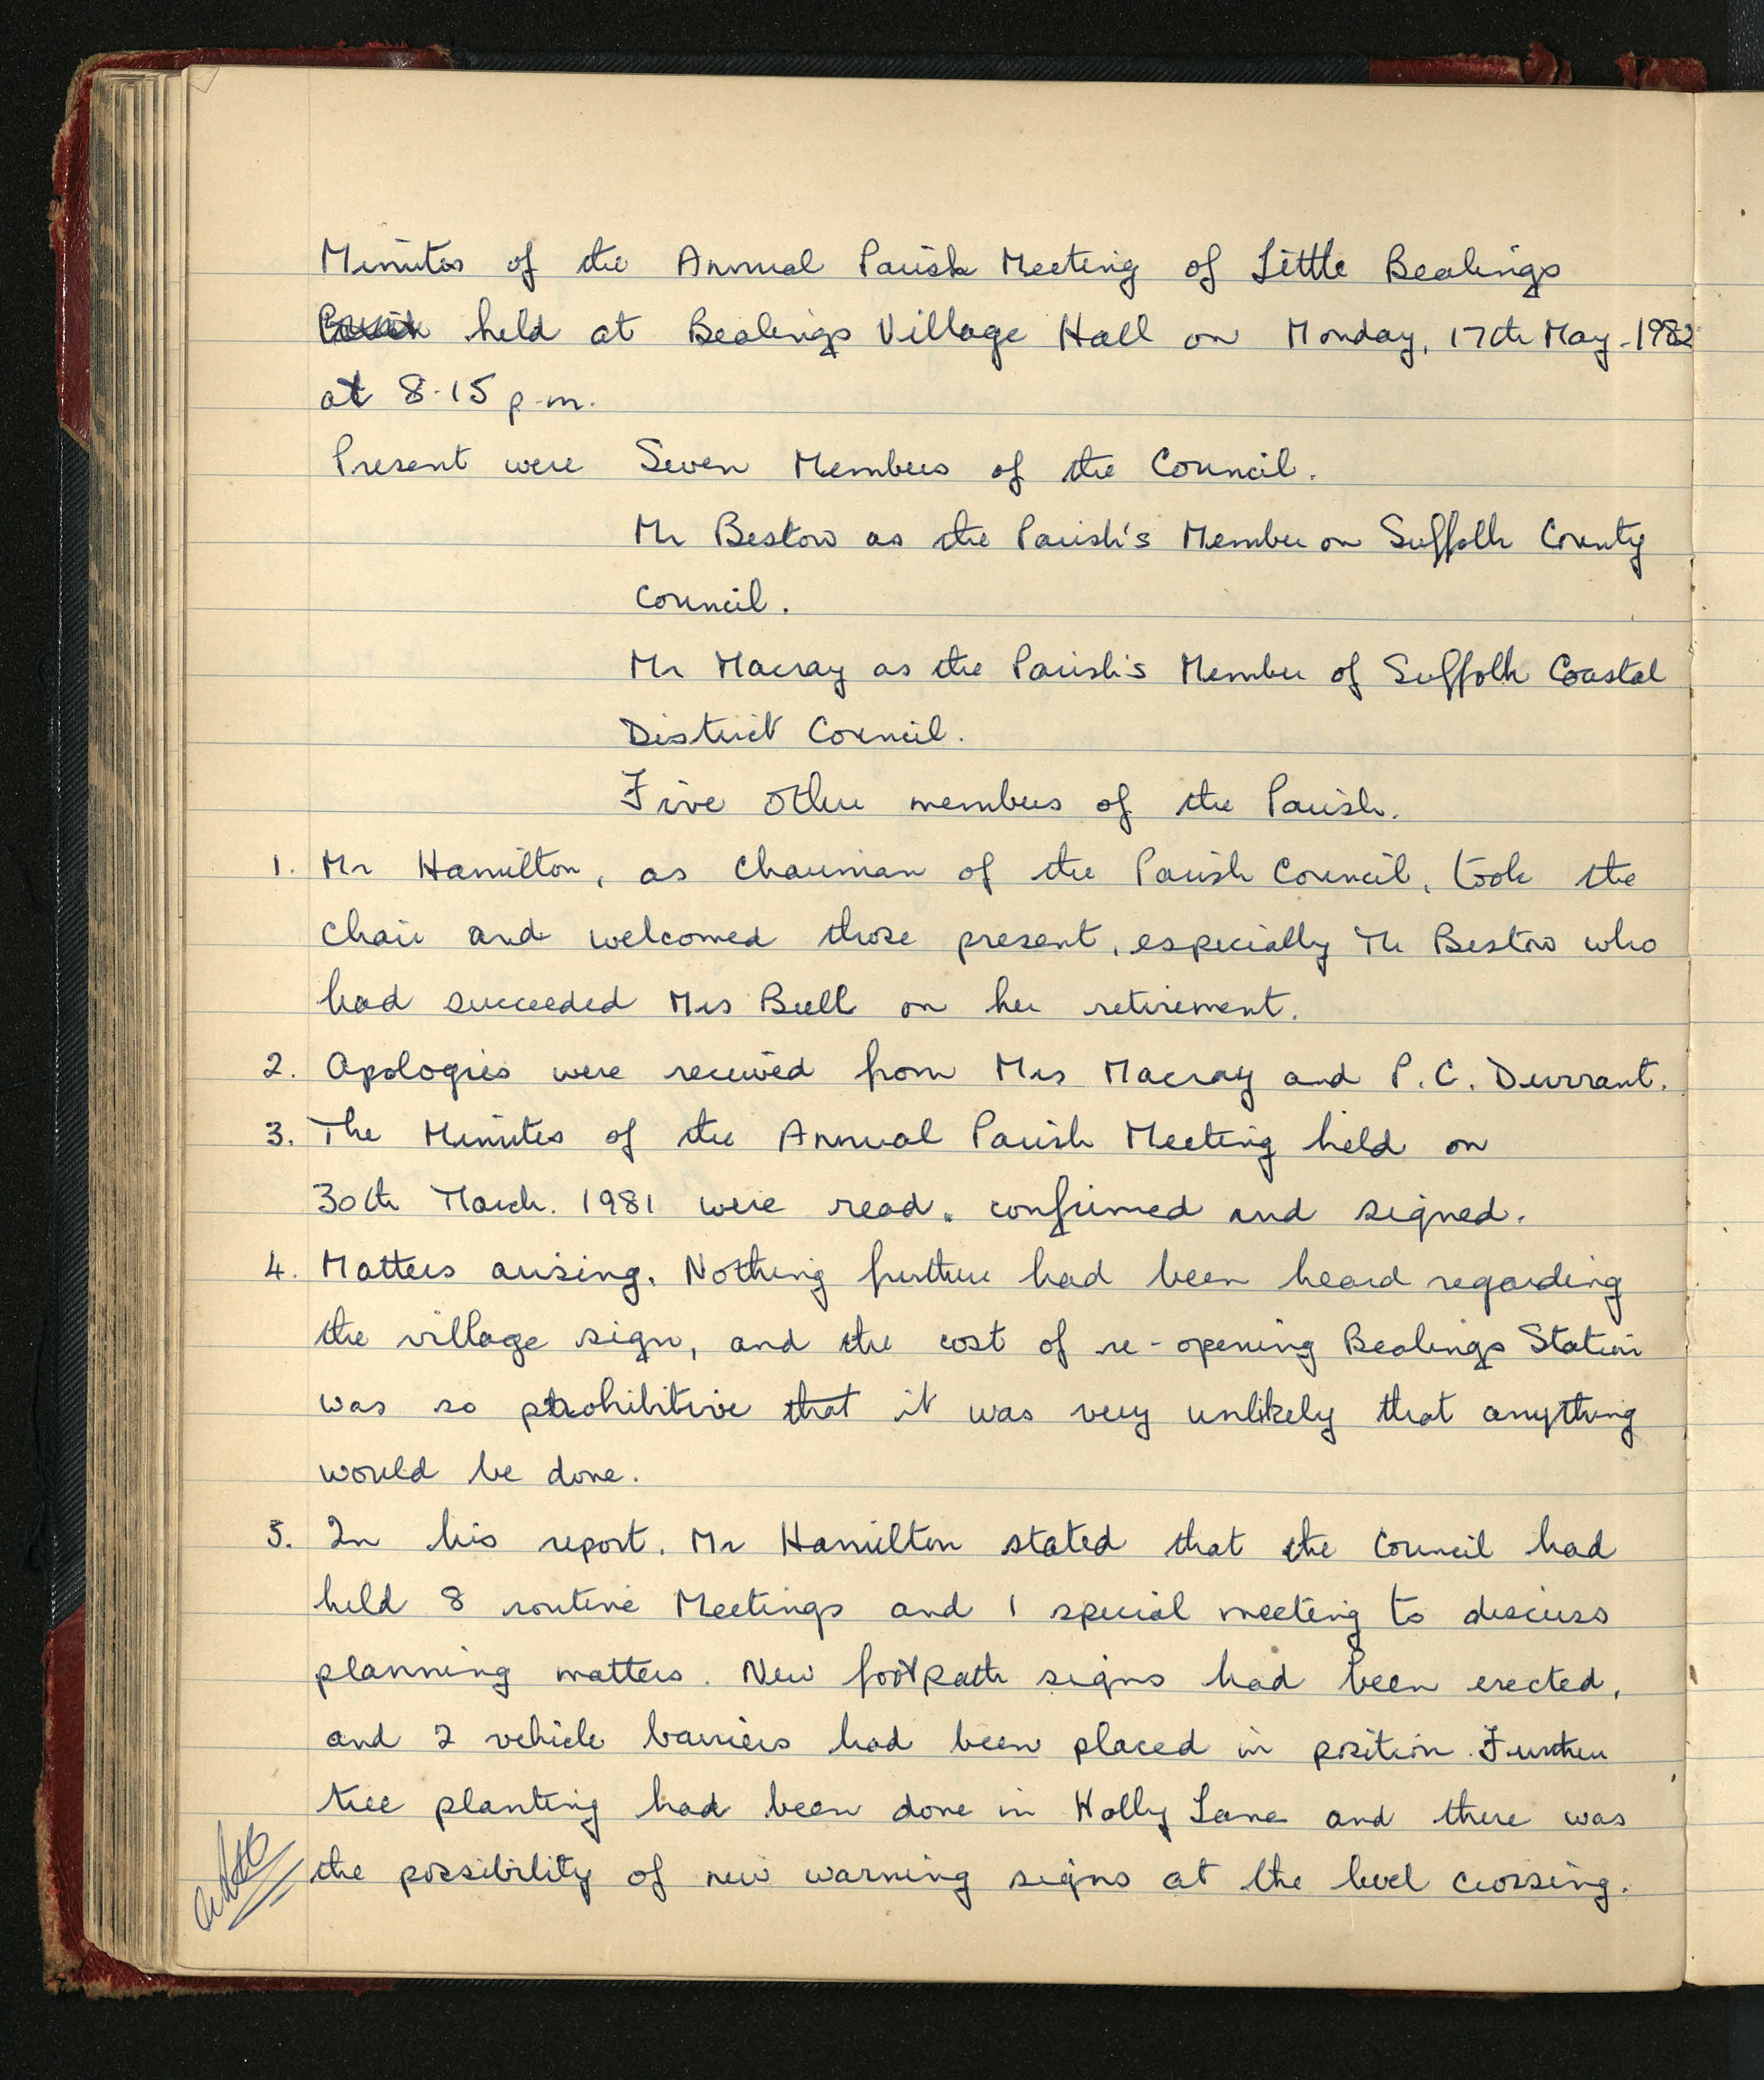 Minutes of the Annual Parish Meeting of Little Bealings
held at Bealings Village Hall on Monday, 17th May. 1982
at 8.15 p.m.
Present were Seven Members of the Council.
Mr Bestow as the Parish's Member on Suffolk County
Council.
Mr Macray as the Parish's Member of Suffolk Coastal
District Council.
Five other members of the Parish.
1. Mr Hamilton, as Chairman of the Parish Council, took the
chair and welcomed those present, especially Mr Bestow who
had succeeded Mrs Bull on her retirement.
2. Apologies were received from Mrs Macray and P.C. Durrant.
3. The Minutes of the Annual Parish Meeting held on
30th March. 1981 were read, confirmed and signed.
4. Matters arising. Nothing further had been heard regarding
the village sign, and the cost of re-opening Bealings Station
was so prohibitive that it was very unlikely that anything
would be done.
5. In his report, Mr Hamilton stated that the Council had
held 8 routine Meetings and 1 special meeting to discuss
planning matters. New footpath signs had been erected,
and 2 vehicle barriers had been placed in position. Further
tree planting had been done in Holly Lane and there was
the possibility of new warning signs at the level crossing.